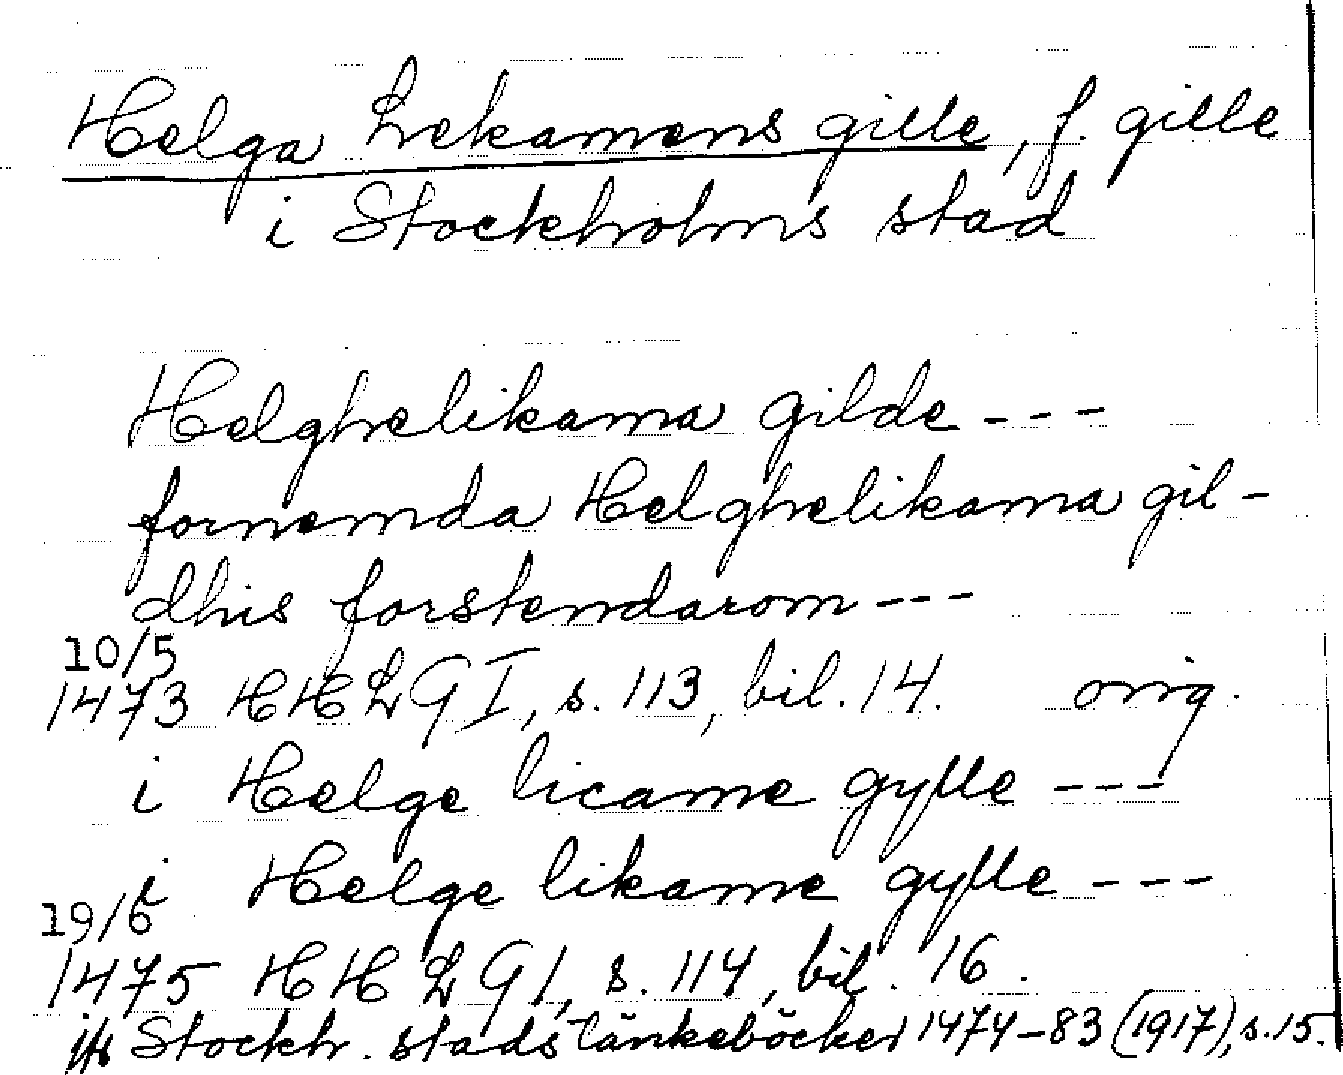 Helga Lekamens gille, f. gille
i Stockholms stad
Helghelikama gilde - - -
fornemda Helghelikama gil-
dhis forstendarom - - -
10/5
1473 HHLG I, s. 113, bil. 14. orig.
i Helge licame gylle - - -
i Helge likame gylle - - -
19/6
1475 HHLG I, s. 114, bil. 16.
jfs Stockh. stads tänkeböcker 1474-83 (1917), s. 15.